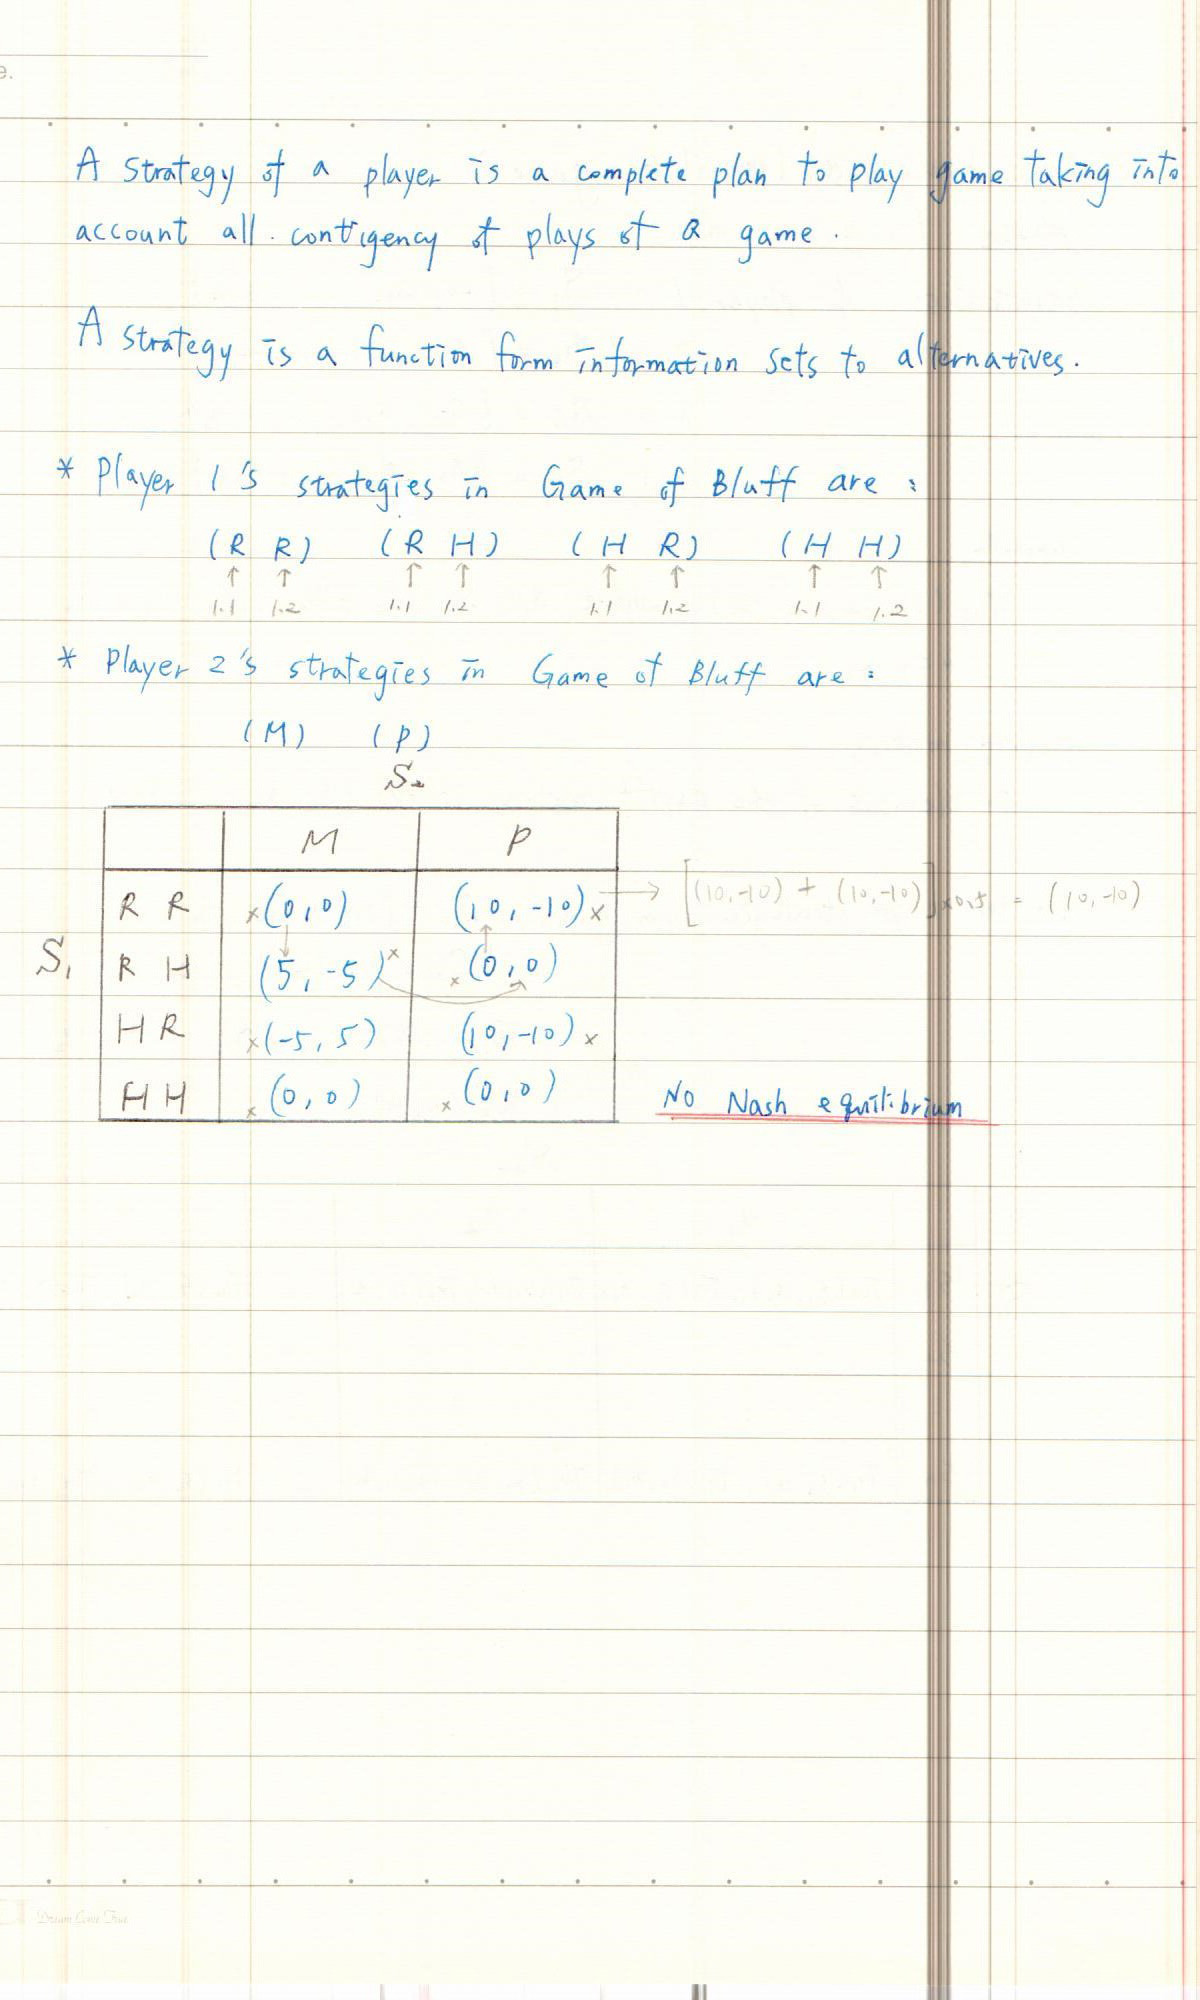 e.
A strategy of a player is a complete plan to play game taking into
account all. contigency of plays of a game.
A strategy is a function form information sets to alternatives.
* Player 1's strategies in Game of Bluff are :
(R R) (R H) (H R) (H H)
↑ ↑ ↑ ↑ ↑ ↑ ↑ ↑
1.1 1.2 1.1 1.2 1.1 1.2 1.1 1.2
* Player 2's strategies in Game of Bluff are :
(M) (P)
S₂
M P
R R ×(0,0) (10,-10)× → [(10,-10) + (10,-10)]×0.5 = (10,-10)
S₁ R H (5,-5)× ×(0,0)
H R ×(-5,5) (10,-10)×
H H ×(0,0) ×(0,0) No Nash equilibrium
Dream Come True